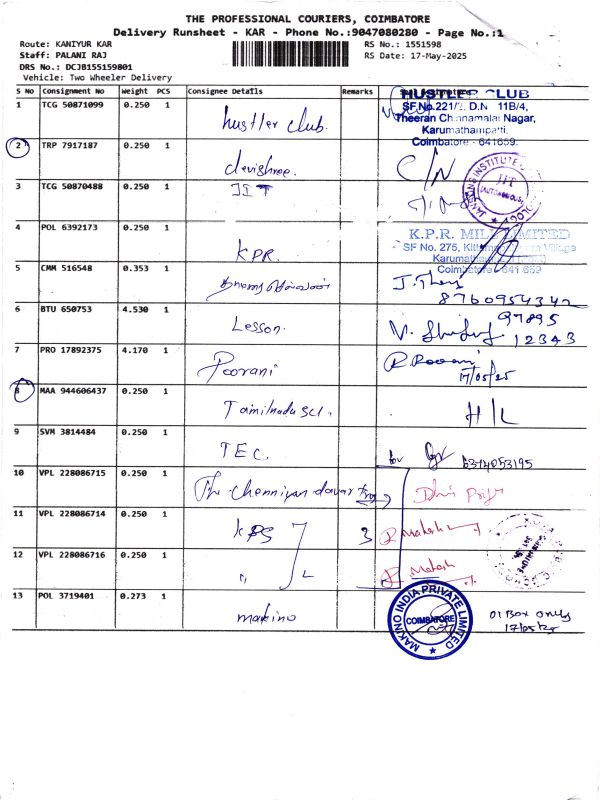 THE PROFESSIONAL COURIERS, COIMBATORE
Delivery Runsheet - KAR - Phone No.:9047080280 - Page No.:1
Route: KANIYUR KAR
RS No.: 1551598
Staff: PALANI RAJ
RS Date: 17-May-2025
DRS No.: DCJB155159801
Vehicle: Two Wheeler Delivery
S No Consignment No Weight PCS Consignee Details Remarks
HUSTLER CLUB
SF.No.221/2, D.N 11B/4,
Theeran Chinnamalai Nagar,
Karumathampatti,
Coimbatore - 641659.
1 TCG 50871099 0.250 1 hustler club.
2 TRP 7917187 0.250 1 devishree. C/N
3 TCG 50870488 0.250 1 JIT
JANSONS INSTITUTE OF
JIT
(AUTONOMOUS)
4 POL 6392173 0.250 1 KPR.
K.P.R. MILL LIMITED
SF No. 275, Village
Coimbatore - 641 659
5 CMM 516548 0.353 1
8760954342
6 BTU 650753 4.530 1 Lesson. 97895
12343
7 PRO 17892375 4.170 1 Poorani R. Poorani
17/05/25
8 MAA 944606437 0.250 1 Tamilnadu SCI. H/L
9 SVM 3814484 0.250 1 TEC. 6374053195
10 VPL 228086715 0.250 1 The Chenniyandavar
11 VPL 228086714 0.250 1 KPS 3
12 VPL 228086716 0.250 1 "
13 POL 3719401 0.273 1 makino
MAKINO INDIA PRIVATE LIMITED
COIMBATORE
01 Box only
17/05/25